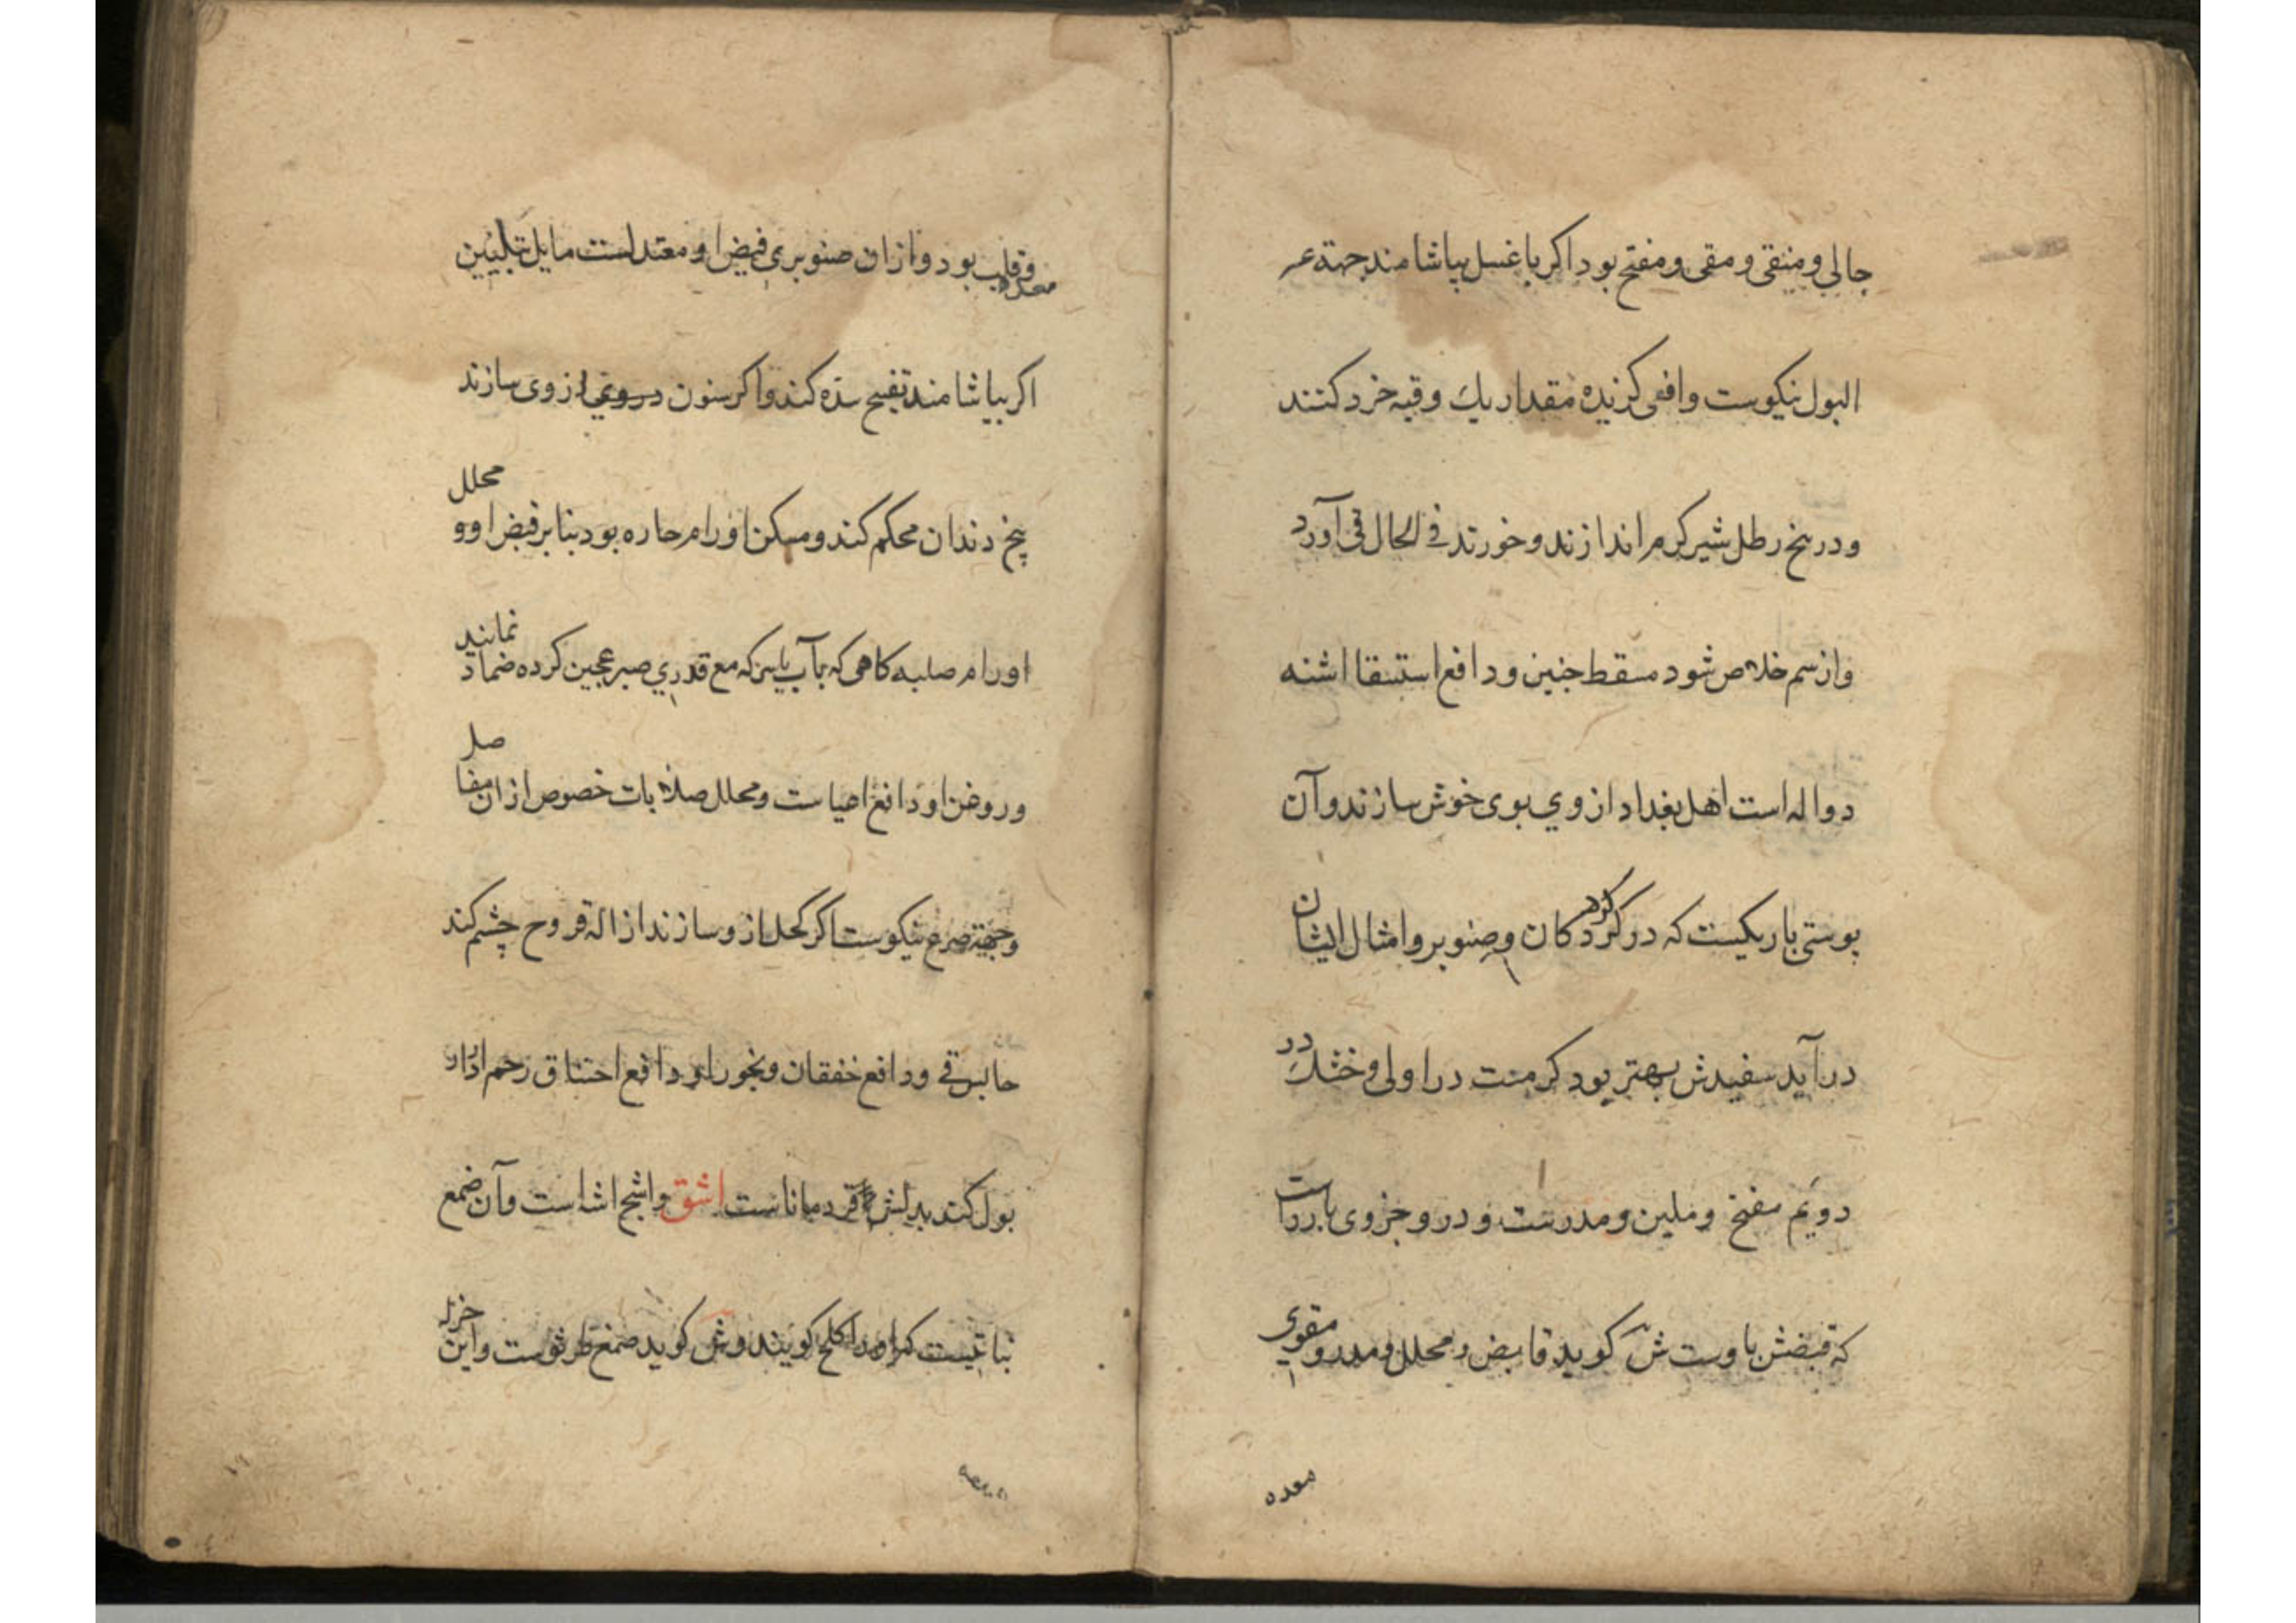 جالي ومنقی ومقی ومفتح بود اکر با عسل بیاشامند جهة عسر
البول نیکوست وافعی کزیده مقدار یك وقیه خرد کنند
ودر پنج رطل شیر کرم اندازند وخورند في الحال قی آورد
واز سم خلاص شود مسقط جنین ودافع استسقا اشنه
دواله است اهل بغداد از وي بوی خوش سازند وآن
پوستی باریکیست که در کردکان وصنوبر وامثال ایشان
در آید سفیدش بهتر بود کرمست در اولی وخشك در
دویم مفتح وملین ومدرست ودر و جزوی باردست
که قبضش باوست ش کوید قابض ومحلل ومدر ومقوي
معده
معده وقلب بود وازان صنوبري قبض او معتدلست مایل بتلیین
اکر بیاشامند تفیح سدّه کند واکر سنون از وی سازند
پنج دندان محکم کند ومسکن اورام حاره بود بنا بر قبض او ومحلل
اورام صلبه کاهی که بآب یا سرکه مع قدري صبر عجین کرده ضماد نمایند
وروغن او دافع اعیاست ومحلل صلابات خصوص ازان مفاصل
وجهة صرع نیکوست اکر کحل از و سازند ازاله قروح چشم کند
حابس قی ودافع خفقان وبخور او دافع اختناق رحم ادرار
بول کند بدلش قردماناست اشق واشج اشا است وآن صمغ
نباتیست که اورا کلخ کویند وش کوید صمغ طرثوست واین